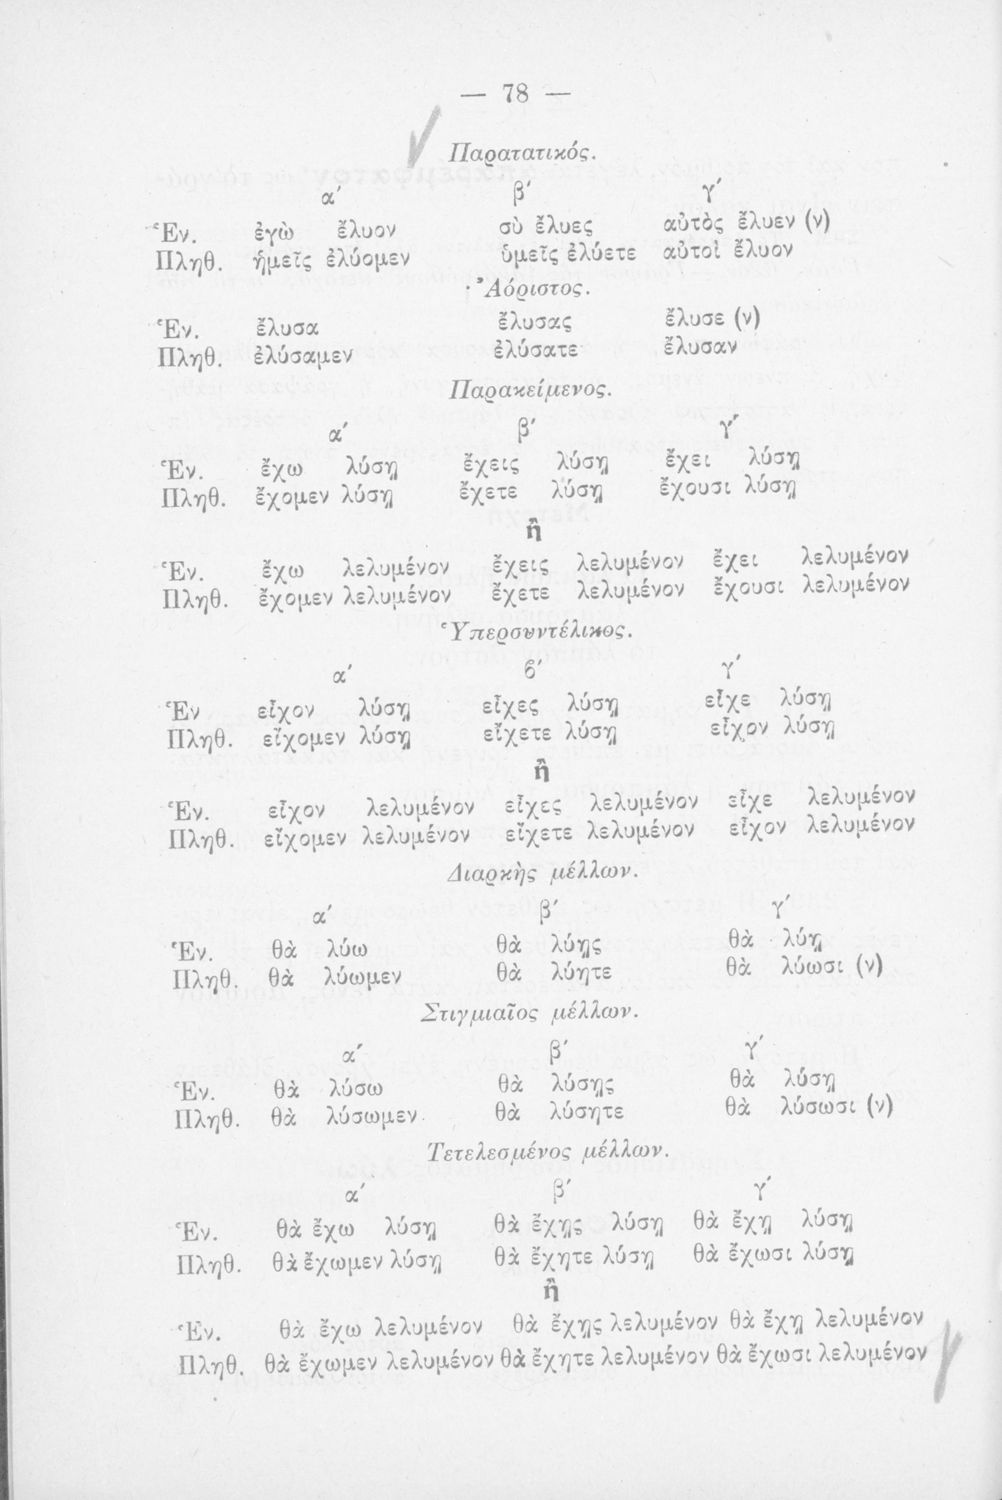 — 78 —
Παρατατικός.
α′ β′ γ′
Ἑν. ἐγὼ ἔλυον σὺ ἔλυες αὐτὸς ἔλυεν (ν)
Πληθ. ἡμεῖς ἐλύομεν ὑμεῖς ἐλύετε αὐτοὶ ἔλυον
Ἀόριστος.
Ἑν. ἔλυσα ἔλυσας ἔλυσε (ν)
Πληθ. ἐλύσαμεν ἐλύσατε ἔλυσαν
Παρακείμενος.
α′ β′ γ′
Ἑν. ἔχω λύσῃ ἔχεις λύσῃ ἔχει λύσῃ
Πληθ. ἔχομεν λύσῃ ἔχετε λύσῃ ἔχουσι λύσῃ
ἢ
Ἑν. ἔχω λελυμένον ἔχεις λελυμένον ἔχει λελυμένον
Πληθ. ἔχομεν λελυμένον ἔχετε λελυμένον ἔχουσι λελυμένον
Ὑπερσυντέλικος.
α′ β′ γ′
Ἑν εἶχον λύσῃ εἶχες λύσῃ εἶχε λύσῃ
Πληθ. εἴχομεν λύσῃ εἴχετε λύσῃ εἶχον λύσῃ
ἢ
Ἑν. εἶχον λελυμένον εἶχες λελυμένον εἶχε λελυμένον
Πληθ. εἴχομεν λελυμένον εἴχετε λελυμένον εἶχον λελυμένον
Διαρκὴς μέλλων.
α′ β′ γ′
Ἑν. θὰ λύω θὰ λύῃς θὰ λύῃ
Πληθ. θὰ λύωμεν θὰ λύητε θὰ λύωσι (ν)
Στιγμιαῖος μέλλων.
α′ β′ γ′
Ἑν. θὰ λύσω θὰ λύσῃς θὰ λύσῃ
Πληθ. θὰ λύσωμεν θὰ λύσητε θὰ λύσωσι (ν)
Τετελεσμένος μέλλων.
α′ β′ γ′
Ἑν. θὰ ἔχω λύσῃ θὰ ἔχῃς λύσῃ θὰ ἔχῃ λύσῃ
Πληθ. θὰ ἔχωμεν λύσῃ θὰ ἔχητε λύσῃ θὰ ἔχωσι λύσῃ
ἢ
Ἑν. θὰ ἔχω λελυμένον θὰ ἔχῃς λελυμένον θὰ ἔχῃ λελυμένον
Πληθ. θὰ ἔχωμεν λελυμένον θὰ ἔχητε λελυμένον θὰ ἔχωσι λελυμένον